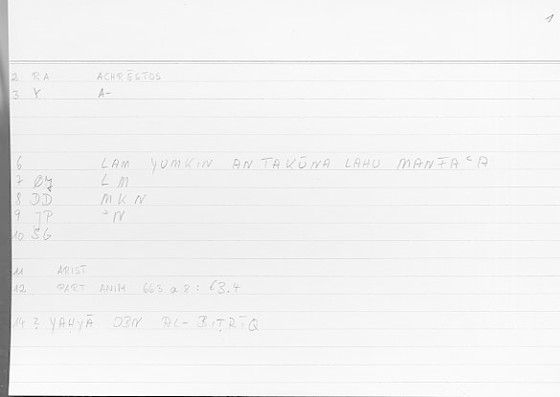 1
2 RA ACHRĒSTOS
3 X A-
6 LAM YUMKIN AN TAKŪNA LAHU MANFAᶜA
7 L M
8 DD MKN
9 JP ᵓN
10 SG
11 ARIST
12 PART ANIM 663 a 8 : 63.4
14 2 YAḤYĀ IBN AL-BIṬRĪQ